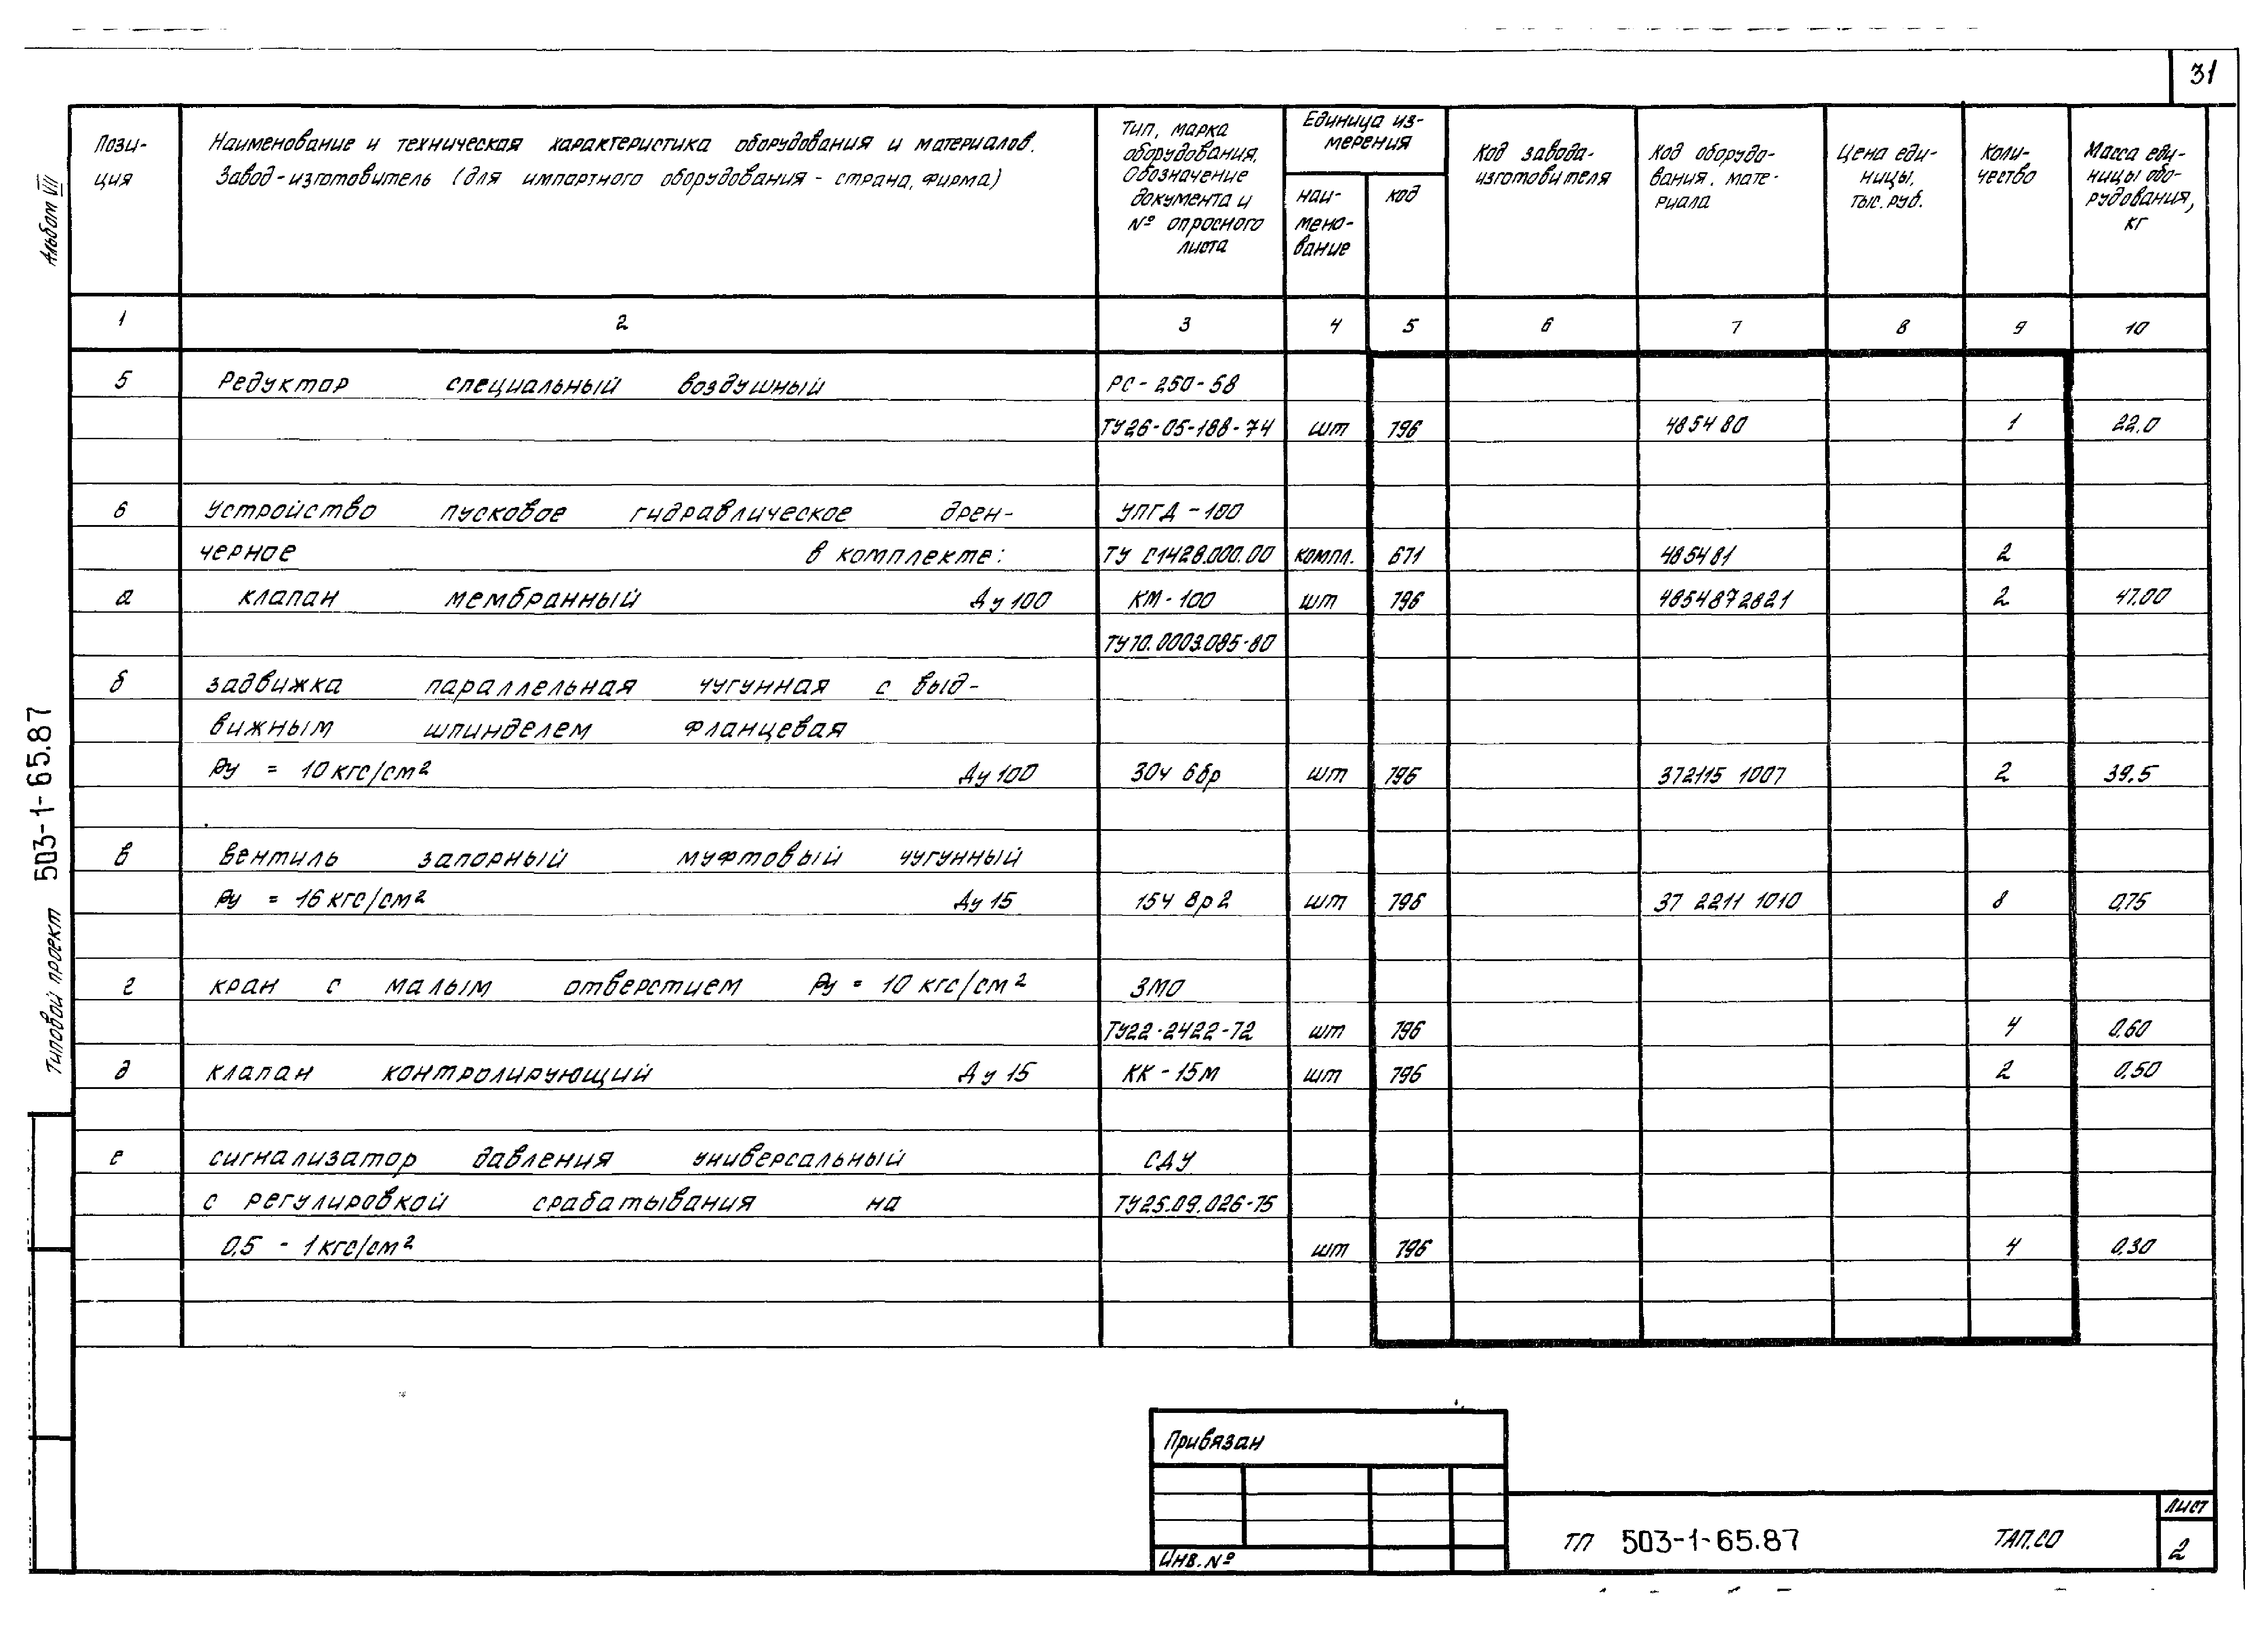 31
Альбом VII
Типовой проект 503-1-65.87
Пози-
ция
Наименование и техническая характеристика оборудования и материалов.
Завод-изготовитель (для импортного оборудования - страна, фирма)
Тип, марка
оборудования.
Обозначение
документа и
№ опросного
листа
Единица из-
мерения
наи-
мено-
вание
код
Код завода-
изготовителя
Код оборудо-
вания, мате-
риала
Цена еди-
ницы,
тыс. руб.
Коли-
чество
Масса еди-
ницы обо-
рудования,
кг
1 2 3 4 5 6 7 8 9 10
5 Редуктор специальный воздушный РС-250-58
ТУ26-05-188-74 шт 796 485480 1 22.0
6 Устройство пусковое гидравлическое дрен- УПГД-100
черное в комплекте: ТУ С1428.000.00 компл. 671 485481 2
а клапан мембранный Ду 100 КМ-100 шт 796 4854872821 2 47.00
ТУ10.0003.085-80
б задвижка параллельная чугунная с выд-
вижным шпинделем фланцевая
Ру = 10 кгс/см² Ду 100 30ч 6бр шт 796 372115 1007 2 39.5
в вентиль запорный муфтовый чугунный
Ру = 16 кгс/см² Ду 15 15ч 8р2 шт 796 37 2211 1010 8 0,75
г кран с малым отверстием Ру = 10 кгс/см² ЗМО
ТУ22-2422-72 шт 796 4 0,60
д клапан контролирующий Ду 15 КК-15М шт 796 2 0,50
е сигнализатор давления универсальный СДУ
с регулировкой срабатывания на ТУ25.09.026-75
0,5 - 1 кгс/см² шт 796 4 0,30
Привязан
Инв. №
ТП 503-1-65.87 ТАП.СО
лист
2